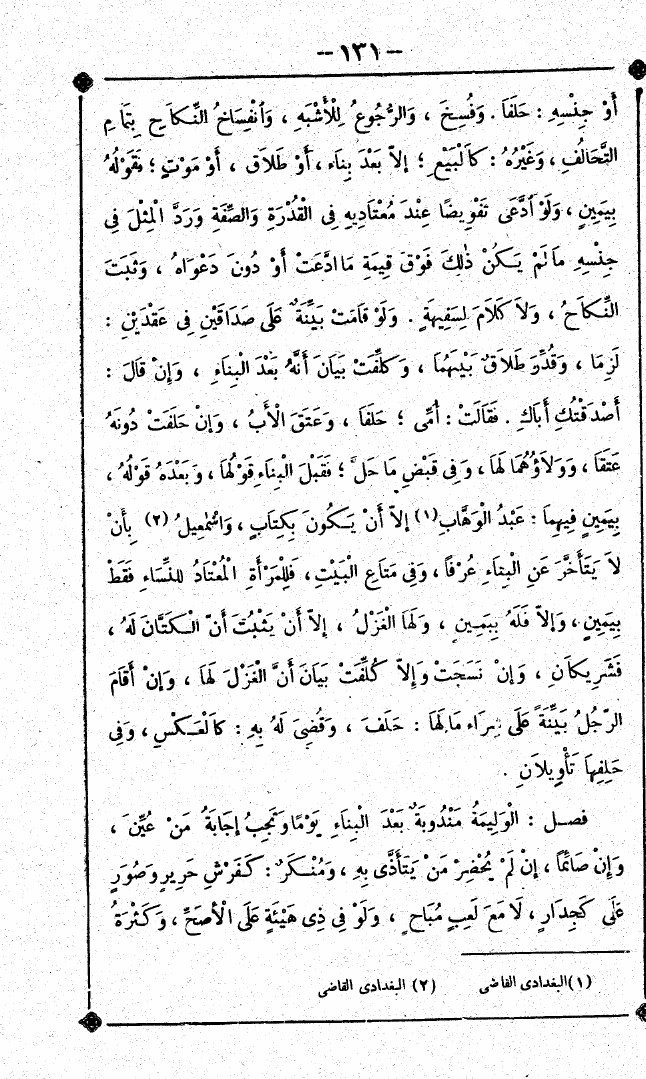 -- ١٣١ --
أَوْ جِنْسِهِ : حَلَفَا . وَفُسِخَ ، وَالرُّجُوعُ لِلْأَشْبَهِ ، وَانْفِسَاخُ النِّكَاحِ بِتَمَامِ
التَّحَالُفِ ، وَغَيْرُهُ : كَالْبَيْعِ ؛ إِلاَّ بَعْدَ بِنَاء ، أَوْ طَلاَق ، أَوْ مَوْتٍ ؛ فَقَوْلُهُ
بِيَمِينٍ ، وَلَوْ ادَّعَى تَفْوِيضًا عِنْدَ مُعْتَادِيهِ فِى الْقُدْرَةِ وَالصِّفَةِ وَرَدَّ الْمِثْلَ فِى
جِنْسِهِ مَا لَمْ يَكُنْ ذٰلِكَ فَوْقَ قِيمَةِ مَا ادَّعَتْ أَوْ دُونَ دَعْوَاهُ ، وَثَبَتَ
النِّكَاحُ ، وَلاَ كَلاَمَ لِسَفِيهَةٍ . وَلَوْ قَامَتْ بَيِّنَةٌ عَلَى صَدَاقَيْنِ فِى عَقْدَيْنِ :
لَزِمَا ، وَقُدِّرَ طَلاَقٌ بَيْنَهُمَا ، وَكُلِّفَتْ بَيَانَ أَنَّهُ بَعْدَ الْبِنَاءِ ، وَإِنْ قَالَ :
أَصْدَقْتُكِ أَبَاكِ . فَقَالَتْ : أُمِّى ؛ حَلَفَا ، وَعَتَقَ الْأَبُ ، وَإِنْ حَلَفَتْ دُونَهُ
عَتَقَا ، وَوَلاَؤُهُمَا لَهَا ، وَفِى قَبْضِ مَا حَلَّ ؛ فَقَبْلَ الْبِنَاءِ قَوْلُهَا ، وَبَعْدَهُ قَوْلُهُ ،
بِيَمِينٍ فِيهِمَا : عَبْدُ الْوَهَّابِ (١) إِلاَّ أَنْ يَكُونَ بِكِتَابٍ ، وَإِسْمٰعِيلُ (٢) بِأَنْ
لاَ يَتَأَخَّرَ عَنِ الْبِنَاءِ عُرْفًا ، وَفِى مَتَاعِ الْبَيْتِ ، فَلِلْمَرْأَةِ الْمُعْتَادُ لِلنِّسَاءِ فَقَطْ
بِيَمِينٍ ، وَإِلاَّ فَلَهُ بِيَمِينٍ ، وَلَهَا الْغَزْلُ ، إِلاَّ أَنْ يَثْبُتَ أَنَّ الْكَتَّانَ لَهُ ،
فَشَرِيكَانِ ، وَإِنْ نَسَجَتْ وَإِلاَّ كُلِّفَتْ بَيَانَ أَنَّ الْغَزْلَ لَهَا ، وَإِنْ أَقَامَ
الرَّجُلُ بَيِّنَةً عَلَى شِرَاء مَا لَهَا : حَلَفَ ، وَقُضِىَ لَهُ بِهِ : كَالْعَكْسِ ، وَفِى
حَلِفِهَا تَأْوِيلاَنِ .
فصل : الْوَلِيمَةُ مَنْدُوبَةٌ بَعْدَ الْبِنَاءِ يَوْمًا وَتَجِبُ إِجَابَةُ مَنْ عُيِّنَ ،
وَإِنْ صَائِمًا ، إِنْ لَمْ يُحْضِرْ مَنْ يَتَأَذَّى بِهِ ، وَمُنْكَرٌ : كَفَرْشِ حَرِيرٍ وَصُوَرٍ
عَلَى كَجِدَارٍ ، لَا مَعَ لَعِبٍ مُبَاحٍ ، وَلَوْ فِى ذِى هَيْئَةٍ عَلَى الْأَصَحِّ ، وَكَثْرَةُ
(١) البغدادى القاضى (٢) البغدادى القاضى